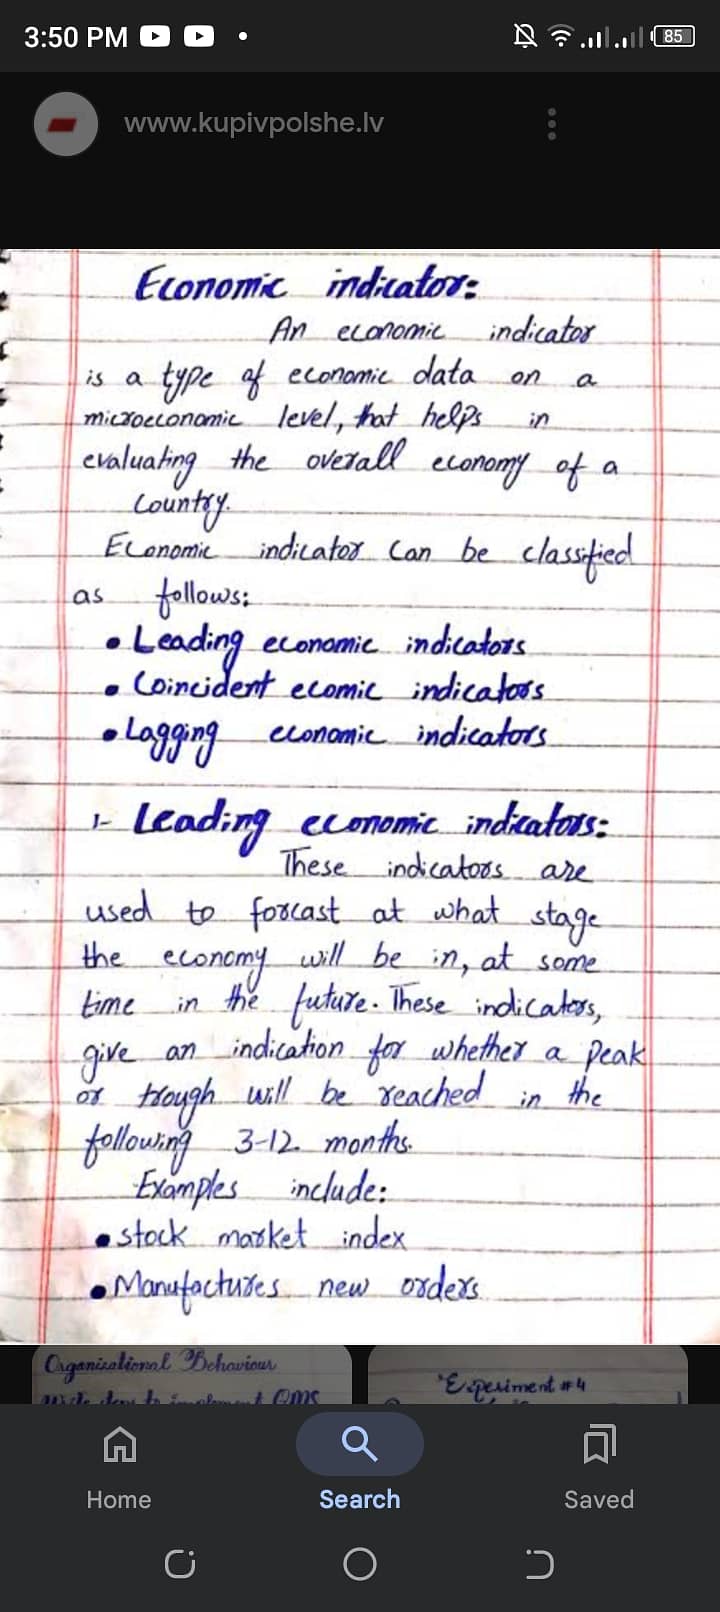 3:50 PM
85
www.kupivpolshe.lv
Economic indicator:
An economic indicator
is a type of economic data on a
microeconomic level, that helps in
evaluating the overall economy of a
Country.
Economic indicator Can be classified
as follows:
• Leading economic indicators
• Coincident ecomic indicators
• Lagging economic indicators
1- Leading economic indicators:
These indicators are
used to forcast at what stage
the economy will be in, at some
time in the future. These indicators,
give an indication for whether a Peak
or trough will be reached in the
following 3-12 months.
Examples include:
• stock market index
• Manufactures new orders
Organizational Behaviour
Write steps to implement QMS
Experiment #4
Home
Search
Saved